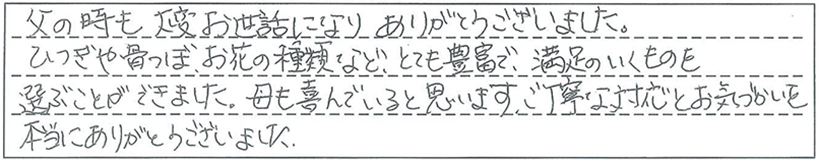 父の時も大変お世話になりありがとうございました。
ひつぎや骨つぼ、お花の種類など、とても豊富で、満足のいくものを
選ぶことができました。母も喜んでいると思います。ご丁寧な対応とお気づかいを
本当にありがとうございました。